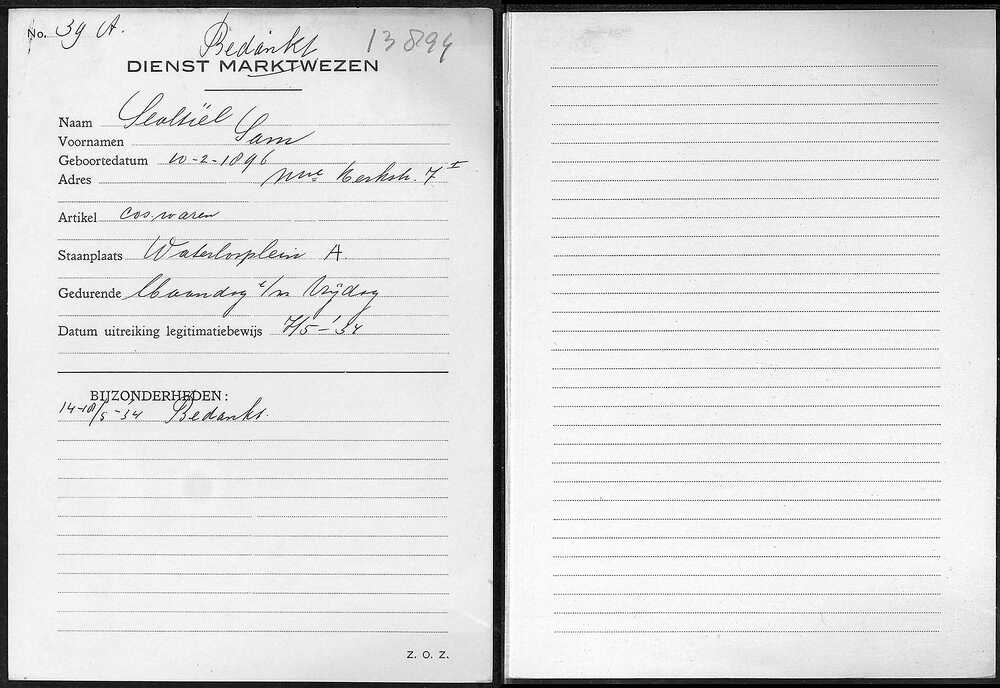 No. 39 A.
Bedankt
13894
DIENST MARKTWEZEN
Naam Sealtiël
Voornamen Sam
Geboortedatum 10-2-1896
Adres Nwe Kerkstr. 7 I
Artikel cos. waren
Staanplaats Waterlooplein A
Gedurende Maandag t/m Vrijdag
Datum uitreiking legitimatiebewijs 7/5-'34
BIJZONDERHEDEN:
14-18/5-'34 Bedankt.
Z. O. Z.